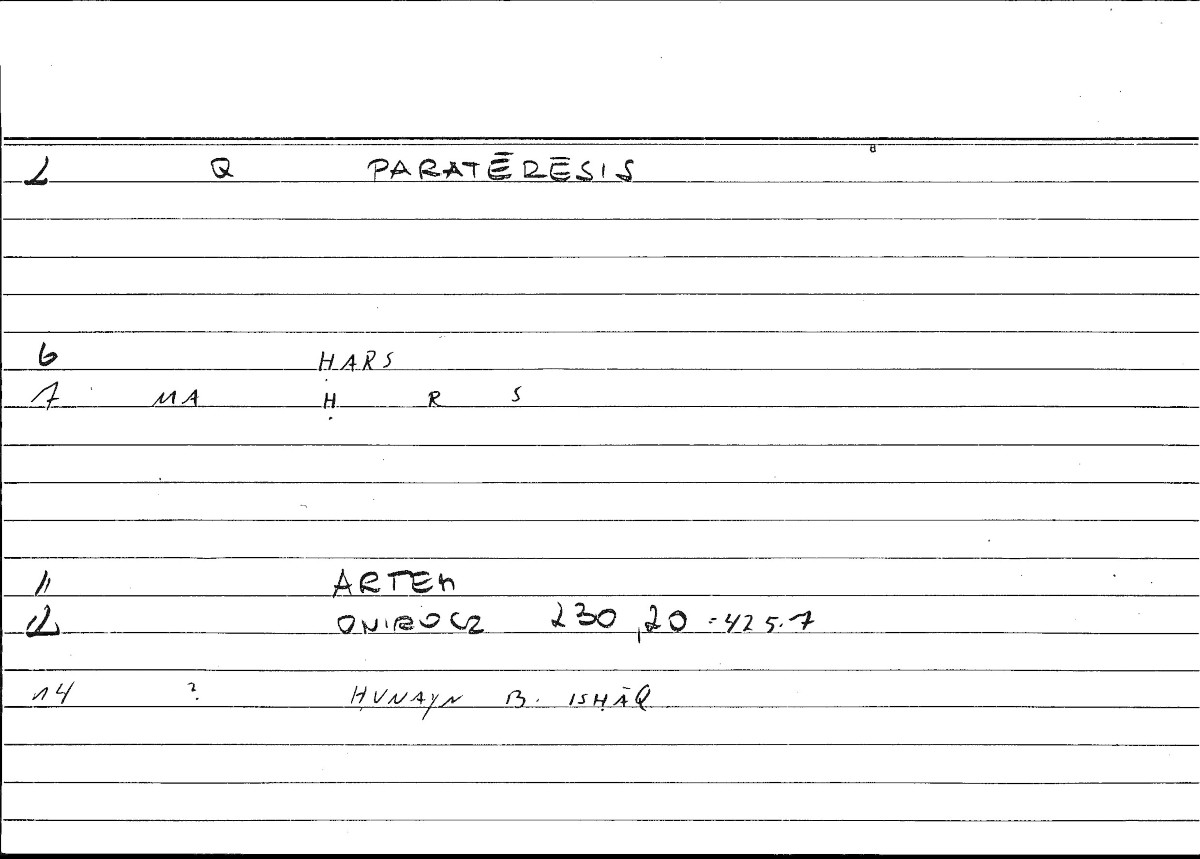 2 Q PARATĒRĒSIS
6 ḤARS
7 MA Ḥ R S
11 ARTEM
12 ONIROCR 230,20 = 425.7
14 ? ḤUNAYN B. ISḤĀQ